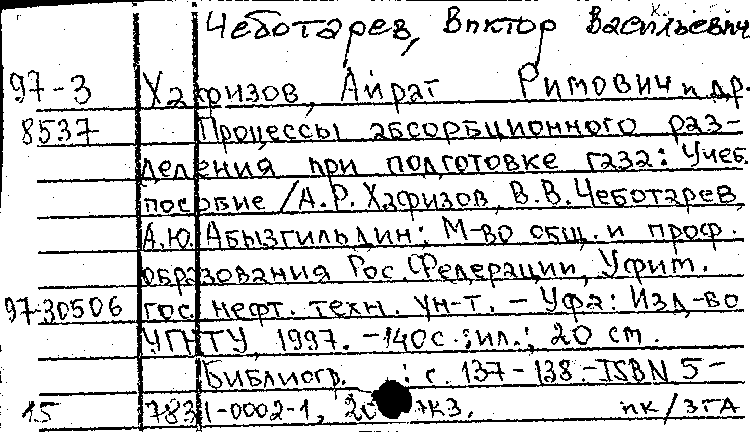 Чеботарев, Виктор Васильевич
97-3 Хафизов, Айрат Римович и др.
8537 Процессы абсорбционного раз-
деления при подготовке газа: Учеб.
пособие / А.Р. Хафизов, В.В. Чеботарев,
А.Ю. Абызгильдин; М-во общ. и проф.
образования Рос. Федерации, Уфим.
97-30506 гос. нефт. техн. ун-т. - Уфа: Изд-во
УГНТУ, 1997. - 140с.: ил.; 20 см.
Библиогр. : с. 137-138. - ISBN 5-
15 7831-0002-1, экз. пк/зга